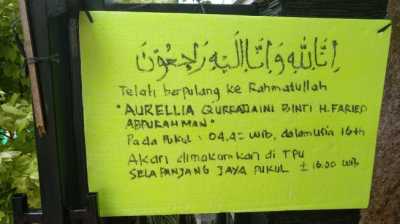 إنا لله وانا اليه راجعون
Telah berpulang ke Rahmatullah
"AURELLIA QURRADAINI BINTI H. FARIED
ABDURAHMAN"
Pada pukul : 04.42 WIB, dalam usia 16 th
Akan dimakamkan di TPU
SELAPANJANG JAYA PUKUL ± 16.00 WIB